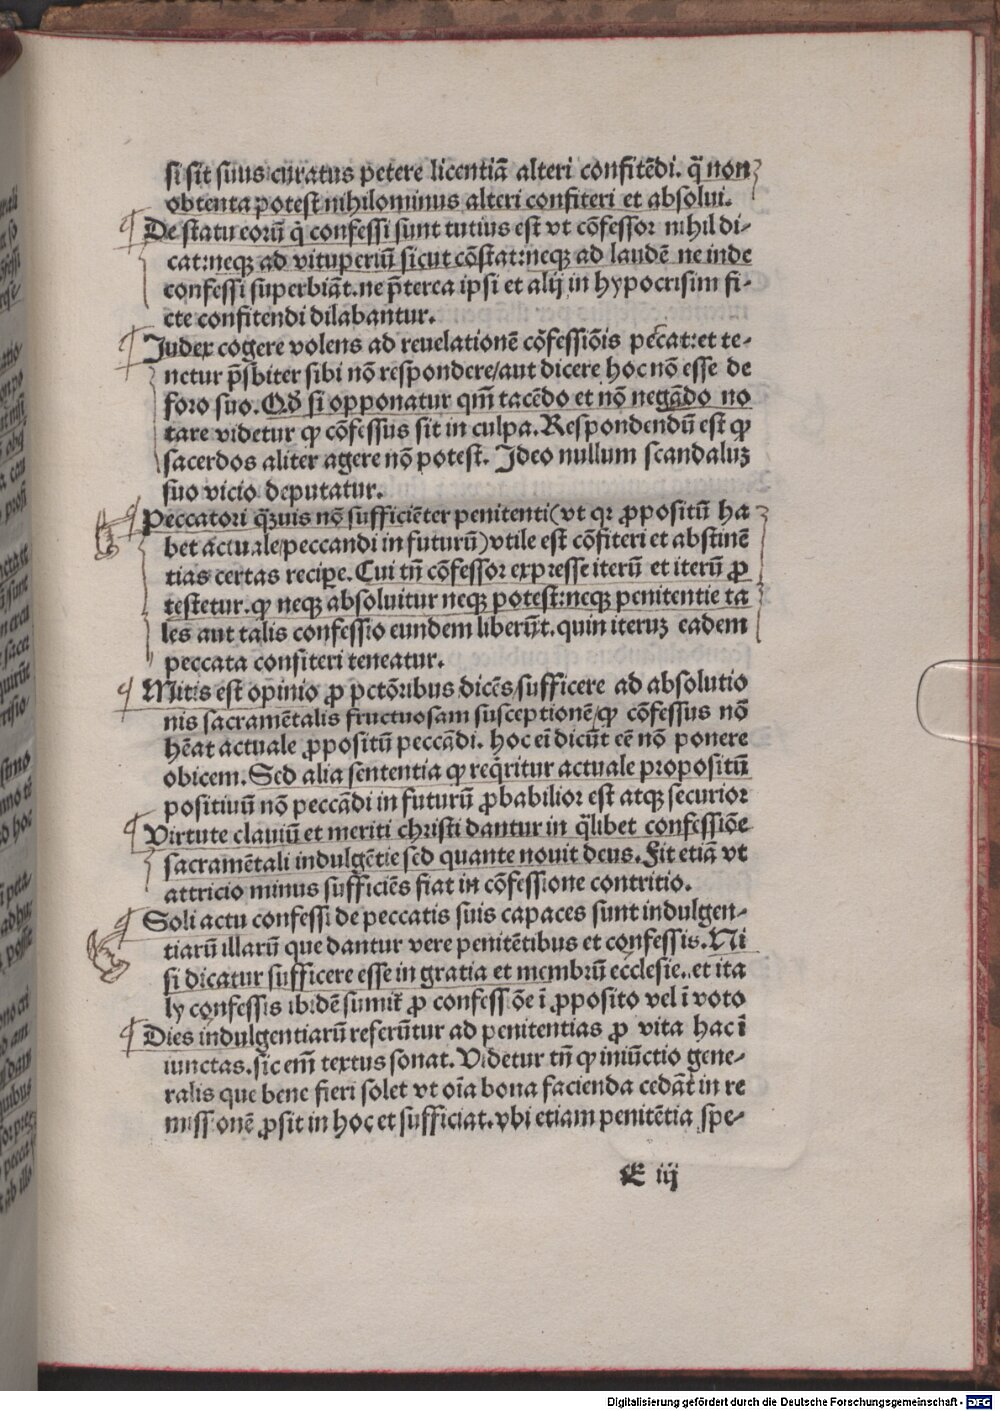 si sit suus curatus petere licentiā alteri confitēdi. q̄ non
obtenta potest nihilominus alteri confiteri et absolui.
De statu eorū q̇ confessi sunt tutius est vt cōfessor nihil di-
cat:neqꝫ ad vituperiū sicut cōstat:neqꝫ ad laudē ne inde
confessi superbiāt.ne p̄terea ipsi et alij in hypocrisim fi-
cte confitendi dilabantur.
Judex cogere volens ad reuelationē cōfessiōis peccat:et te-
netur p̄sbiter sibi nō respondere/aut dicere hoc nō esse de
foro suo. Qđ si opponatur qm̄ tacēdo et nō negādo no
tare videtur ꝙ cōfessus sit in culpa. Respondendū est ꝙ
sacerdos aliter agere nō potest. Ideo nullum scandaluꝫ
suo vicio deputatur.
Peccatori q̄ꝫuis nō sufficiēter penitenti(vt qꝛ ꝓpositū ha
bet actuale/peccandi in futurū)vtile est cōfiteri et abstinē
tias certas recipe. Cui tn̄ cōfessor expresse iterū et iterū ꝓ
testetur.ꝙ neqꝫ absoluitur neqꝫ potest:neqꝫ penitentie ta
les aut talis confessio eundem liberūt.quin iteruꝫ eadem
peccata confiteri teneatur.
Mitis est opinio ꝓ pctōribus dicēs/sufficere ad absolutio
nis sacramētalis fructuosam susceptionē/ꝙ cōfessus nō
hēat actuale ꝓpositū peccādi. hoc eī dicūt eē nō ponere
obicem. Sed alia sententia ꝙ reqꝛ̇itur actuale propositū
positiuū nō peccādi in futurū ꝓbabilior est atqꝫ securior
Virtute clauiū et meriti christi dantur in q̄libet confessiōe
sacramētali indulgētie sed quante nouit deus. Fit etiā vt
attricio minus sufficiēs fiat in cōfessione contritio.
Soli actu confessi de peccatis suis capaces sunt indulgen-
tiarū illarū que dantur vere penitētibus et confessis. Ni
si dicatur sufficere esse in gratia et membrū ecclesie..et ita
ly confessis ibidē sumit̄ ꝓ confessiōe ī ꝓposito vel ī voto
Dies indulgentiarū referūtur ad penitentias ꝓ vita hac ī
iunctas. sic em̄ textus sonat. Videtur tn̄ ꝙ iniūctio gene-
ralis que bene fieri solet vt oīa bona facienda cedāt in re
missionē ꝓsit in hoc et sufficiat. vbi etiam penitētia spe-
E iij
Digitalisierung gefördert durch die Deutsche Forschungsgemeinschaft - DFG